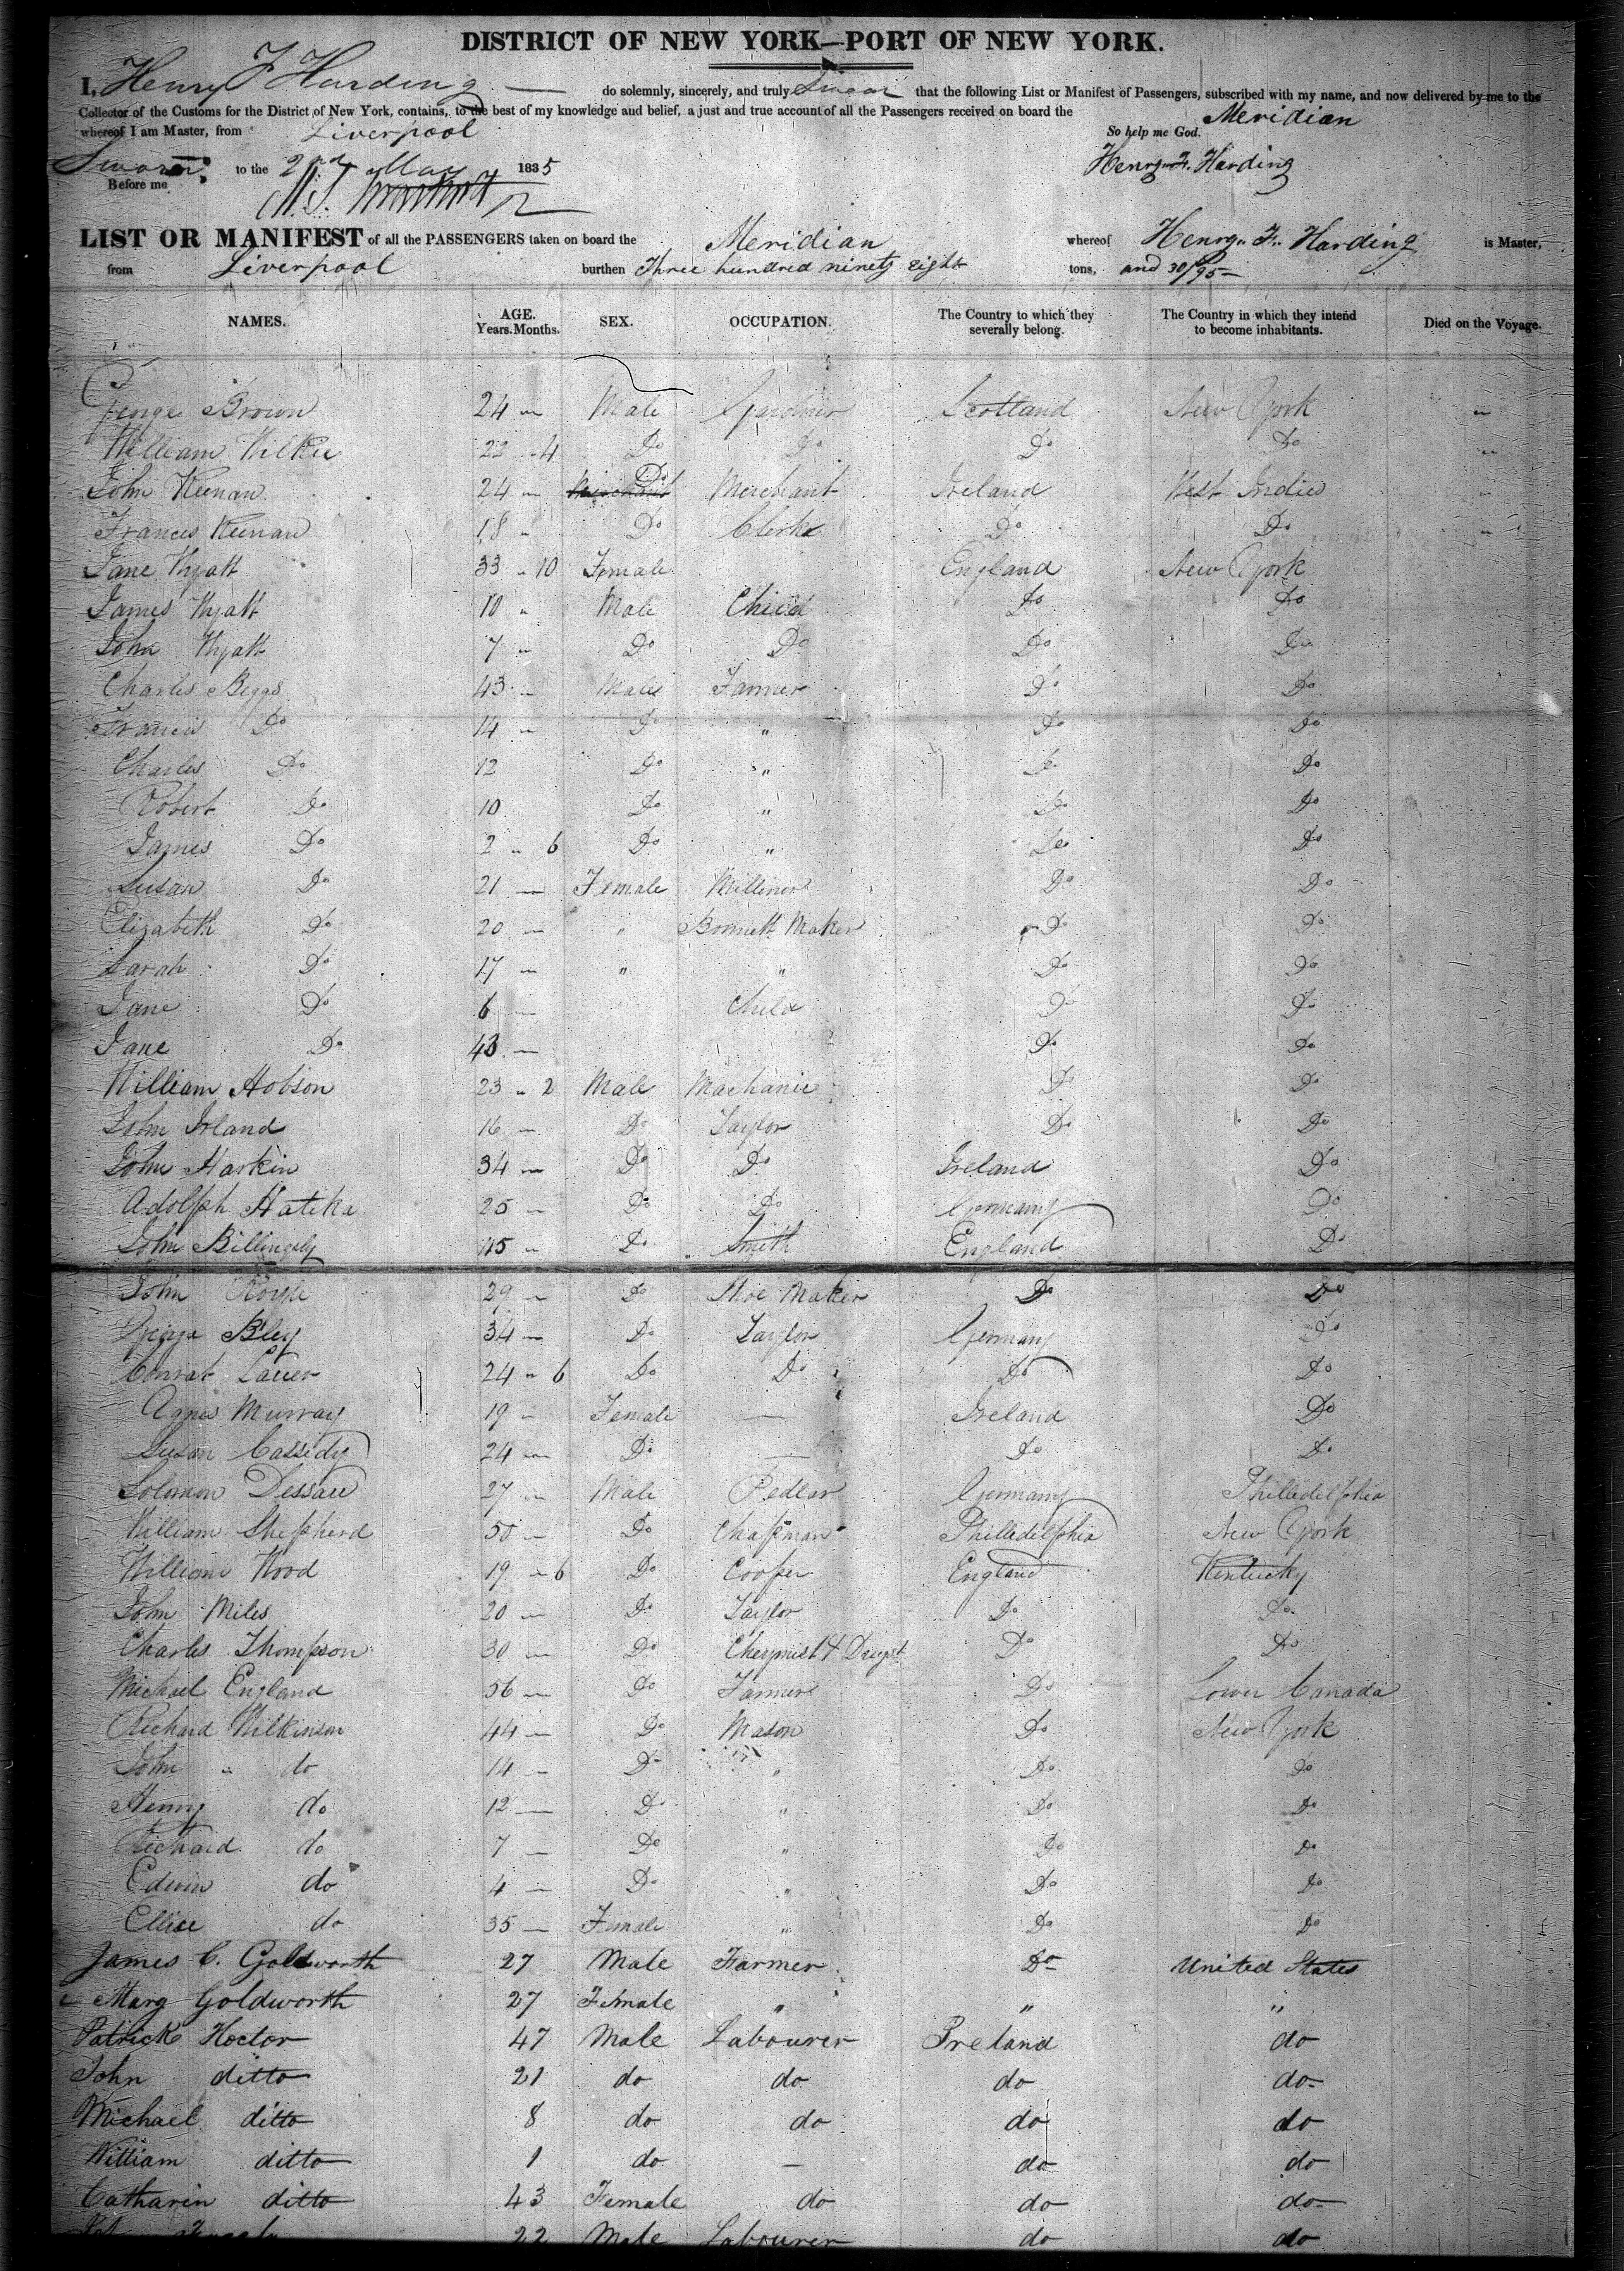 DISTRICT OF NEW YORK—PORT OF NEW YORK.
I, Henry F Harding — do solemnly, sincerely, and truly Swear that the following List or Manifest of Passengers, subscribed with my name, and now delivered by me to the
Collector of the Customs for the District of New York, contains, to the best of my knowledge and belief, a just and true account of all the Passengers received on board the Meridian
whereof I am Master, from Liverpool So help me God.
Sworn to the 2nd May 1835 Henry F. Harding
Before me
LIST OR MANIFEST of all the PASSENGERS taken on board the Meridian whereof Henry F. Harding is Master,
from Liverpool burthen Three hundred ninety eight tons, and 30/95 —
NAMES. AGE. Years. Months. SEX. OCCUPATION. The Country to which they severally belong. The Country in which they intend to become inhabitants. Died on the Voyage.
George Brown 24 " Male Gardner Scotland New York "
William Wilkie 22 " 4 Do Do Do Do "
John Keenan 24 " Do Merchant Ireland West Indies "
Frances Keenan 18 " Do Clerke Do Do "
Jane Wyatt 33 " 10 Female England New York
James Wyatt 10 " Male Child Do Do
John Wyatt 7 " Do Do Do Do
Charles Beggs 43 " Male Farmer Do Do
Francis Do 14 " Do " Do Do
Charles Do 12 Do " Do Do
Robert Do 10 Do " Do Do
James Do 2 " 6 Do " Do Do
Susan Do 21 — Female Milliner Do Do
Elizabeth Do 20 — " Bonnett Maker Do Do
Sarah Do 17 — " " Do Do
Jane Do 6 — Child Do Do
Jane Do 43 — Do Do
William Hobson 23 " 2 Male Machanic Do Do
John Irland 16 — Do Taylor Do Do
John Harkin 34 — Do Do Ireland Do
Adolph Hatika 25 — Do Do Germany Do
John Billingsly 45 " Do Smith England Do
John 29 — Do Shoe Maker Do Do
George Bley 34 — Do Taylor Germany Do
Conrat Lauer 24 " 6 Do Do Do Do
Agnes Murray 19 " Female — Ireland Do
Susan Cassidy 24 — Do — Do Do
Solomon Dessau 27 — Male Pedler Germany Philledelphia
William Shepherd 50 — Do Chapman Philledelphia New York
William Wood 19 " 6 Do Cooper England Kentucky
John Miles 20 — Do Taylor Do Do
Charles Thompson 30 — Do Cheymist & Drugst Do Do
Michael England 56 — Do Farmer Do Lower Canada
Richard Wilkinson 44 — Do Mason Do New York
John " do 14 — Do " Do Do
Henry do 12 — Do " Do Do
Richard do 7 — Do " Do Do
Edwin do 4 — Do " Do Do
Ellise do 35 — Female " Do Do
James C. Goldworth 27 Male Farmer Do United States
Mary Goldworth 27 Female " " "
Patrick Hoctor 47 Male Labourer Ireland do
John ditto 21 do do do do
Michael ditto 8 do do do do
William ditto 1 do — do do
Catharin ditto 43 Female do do do
22 Male Labourer do do